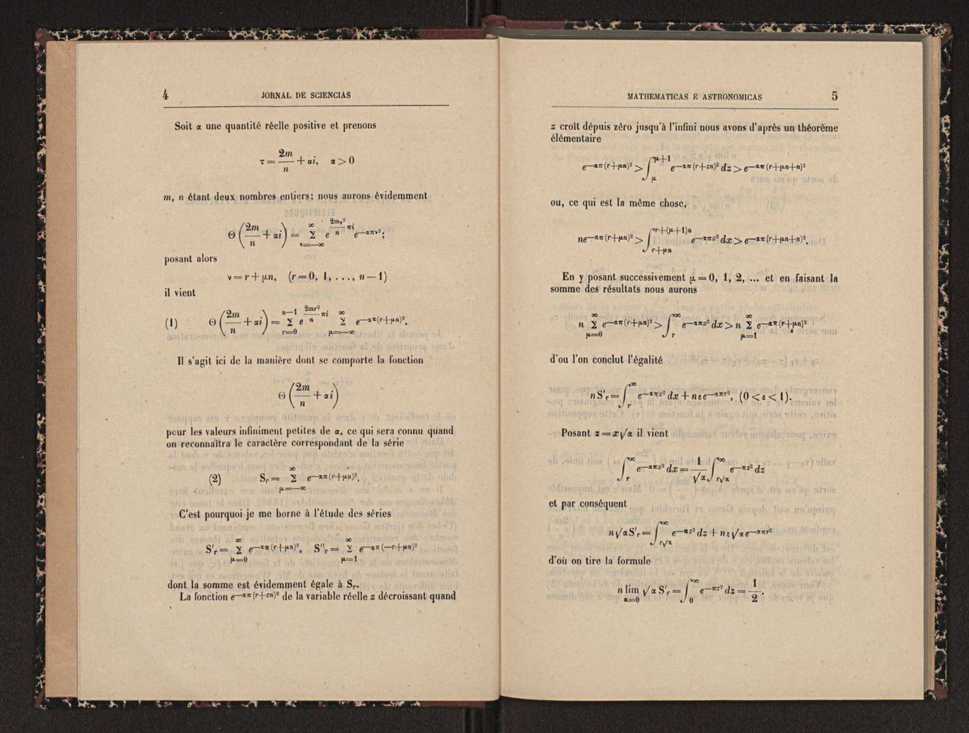 4 JORNAL DE SCIENCIAS
Soit α une quantité réelle positive et prenons
τ = 2m/n + αi, α > 0
m, n étant deux nombres entiers; nous aurons évidemment
Θ(2m/n + αi) = Σ_{ν=—∞}^{∞} e^{(2mν²/n)πi} e^{—απν²};
posant alors
ν = r + μn, (r = 0, 1, ..., n — 1)
il vient
(1) Θ(2m/n + αi) = Σ_{r=0}^{n—1} e^{(2mr²/n)πi} Σ_{μ=—∞}^{∞} e^{—απ(r+μn)²}.
Il s'agit ici de la manière dont se comporte la fonction
Θ(2m/n + αi)
pour les valeurs infiniment petites de α, ce qui sera connu quand
on reconnaîtra le caractère correspondant de la série
(2) S_r = Σ_{μ=—∞}^{∞} e^{—απ(r+μn)²}.
C'est pourquoi je me borne à l'étude des séries
S'_r = Σ_{μ=0}^{∞} e^{—απ(r+μn)²}, S''_r = Σ_{μ=1}^{∞} e^{—απ(—r+μn)²}
dont la somme est évidemment égale à S_r.
La fonction e^{—απ(r+zn)²} de la variable réelle z décroissant quand
MATHEMATICAS E ASTRONOMICAS 5
z croît dépuis zéro jusqu'à l'infini nous avons d'après un théorême
élémentaire
e^{—απ(r+μn)²} > ∫_{μ}^{μ+1} e^{—απ(r+zn)²} dz > e^{—απ(r+μn+n)²}
ou, ce qui est la même chose,
ne^{—απ(r+μn)²} > ∫_{r+μn}^{r+(μ+1)n} e^{—απx²} dx > e^{—απ(r+μn+n)²}.
En y posant successivement μ = 0, 1, 2, ... et en faisant la
somme des résultats nous aurons
n Σ_{μ=0}^{∞} e^{—απ(r+μn)²} > ∫_{r}^{∞} e^{—απx²} dx > n Σ_{μ=1}^{∞} e^{—απ(r+μn)²}
d'ou l'on conclut l'égalité
nS'_r = ∫_{r}^{∞} e^{—απx²} dx + nεe^{—απr²}, (0 < ε < 1).
Posant z = x√α il vient
∫_{r}^{∞} e^{—απx²} dx = 1/√α ∫_{r√α}^{∞} e^{—πz²} dz
et par conséquent
n√α S'_r = ∫_{r√α}^{∞} e^{—πz²} dz + nε√α e^{—απr²}
d'où on tire la formule
n lim_{α=0} √α S'_r = ∫_{0}^{∞} e^{—πz²} dz = 1/2.